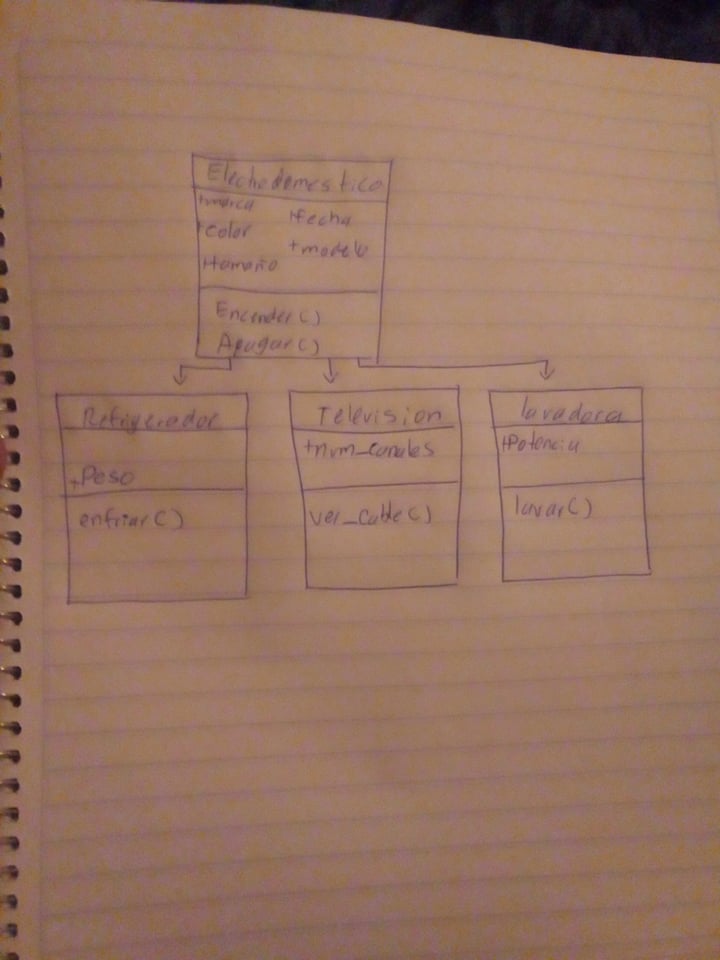 Electrodomestico
+marca
+fecha
+Color
+modelo
+tamaño
Encender()
Apagar()
Refrigerador
+Peso
enfriar()
Television
+num_canales
ver_Cable()
lavadora
+Potencia
lavar()